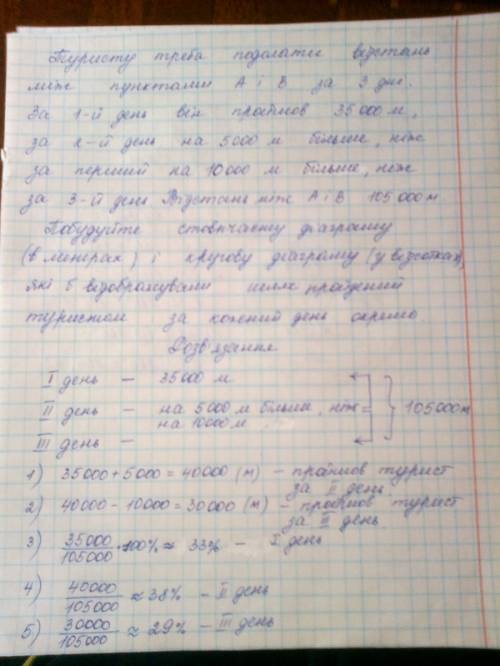 Туристу треба подолати відстань
між пунктами А і В за 3 дні.
За 1-й день він пройшов 35 000 м,
за 2-й день на 5000 м більше, ніж
за перший на 10 000 м більше, ніж
за 3-й день Відстань між А і В 105 000 м
Побудуйте стовпчасту діаграму
(в метрах) і кругову діаграму (у відсотках),
які б відображували шлях пройдений
туристом за кожний день окремо
Розв'язання
I день – 35000 м
II день – на 5000 м більше, ніж
на 10000 м
105000 м
III день –
1) 35000 + 5000 = 40000 (м) – пройшов турист
за II день
2) 40000 - 10000 = 30000 (м) – пройшов турист
за III день
3) 35000/105000 · 100% ≈ 33% – I день
4) 40000/105000 ≈ 38% – II день
5) 30000/105000 ≈ 29% – III день